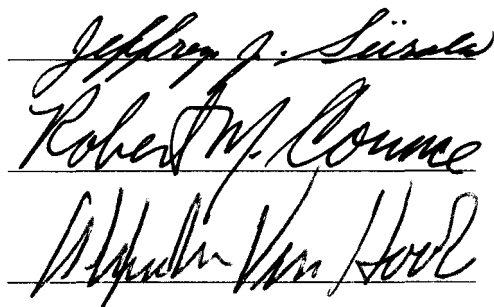 Jeffrey J. Siirola
Robert M. Counce
Van Hook